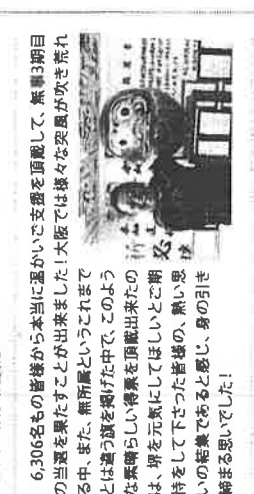 6,306名もの皆様から本当に温かいご支援を頂戴して、無事3期目
の当選を果たすことが出来ました！大阪では様々な突風が吹き荒れ
る中、また、無所属というこれまで
とは違う旗を掲げた中で、このよう
な素晴らしい得票を頂戴出来たの
は、堺を元気にしてほしいとご期
待をして下さった皆様の、熱い思
いの結集であると感じ、身の引き
締まる思いでした！
必